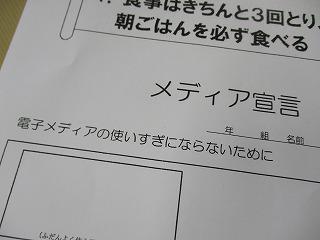 食事はきちんと3回とり、
朝ごはんを必ず食べる
メディア宣言
年 組 名前
電子メディアの使いすぎにならないために